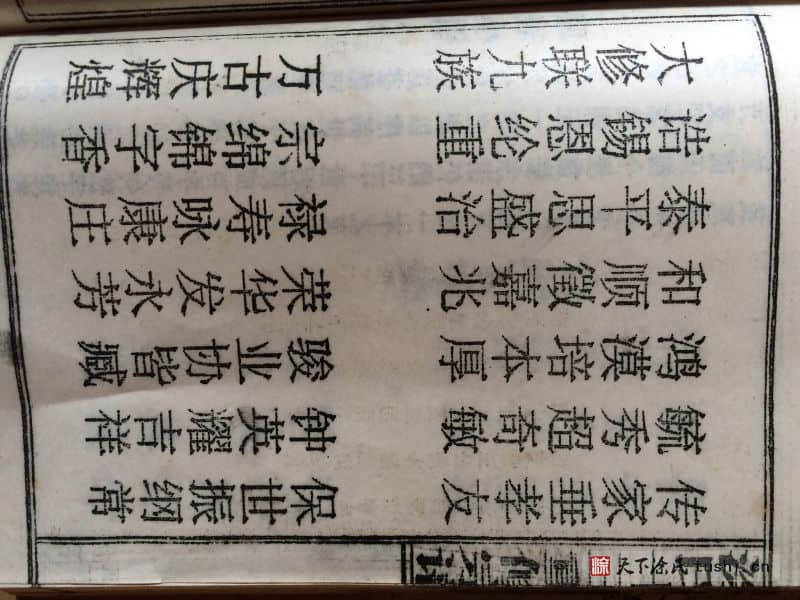 传家垂孝友 保世振纲常
毓秀超奇敏 钟英耀吉祥
鸿漠培本厚 骏业协皆臧
和顺徵嘉兆 荣华发永芳
泰平思盛治 禄寿咏康庄
诰锡恩纶重 宗绵锦字香
大修联九族 万古庆辉煌
涂 天下涂氏 tushi.cn